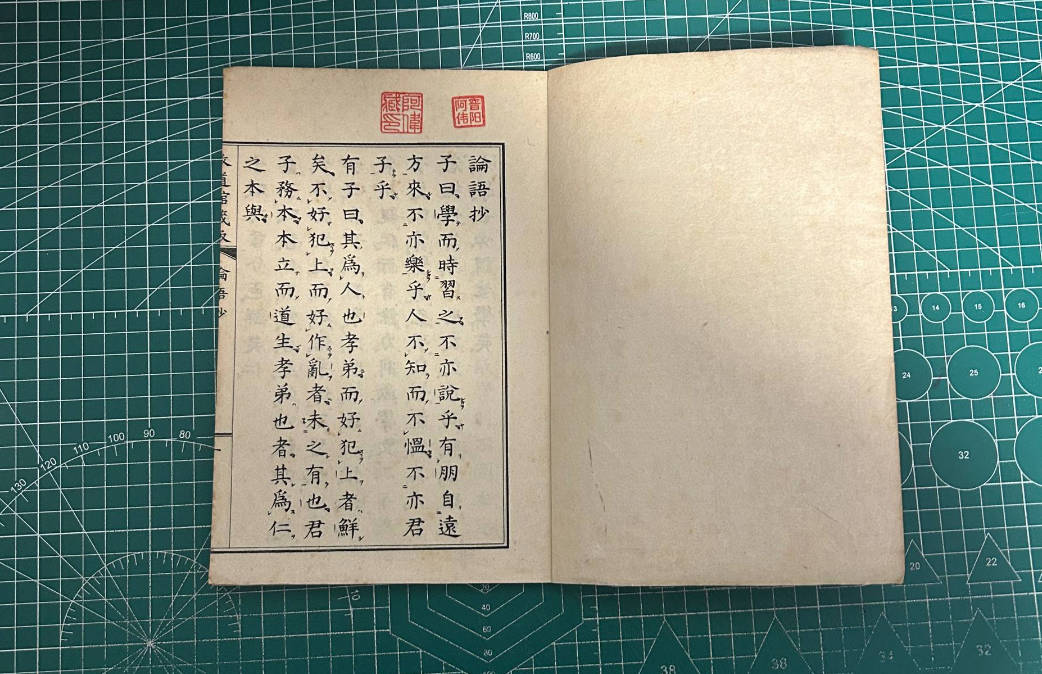 晋阳阿伟
阿偉藏印
論語抄
子曰學而時習之不亦說乎有朋自遠
方來不亦樂乎人不知而不慍不亦君
子乎
有子曰其爲人也孝弟而好犯上者鮮
矣不好犯上而好作亂者未之有也君
子務本本立而道生孝弟也者其爲仁
之本與
道館藏版
論語抄
R800
R700
R600
130 120 110 100 90 80
14 15 16
24 25
32
20 22
40
60
80
38 38 34 32